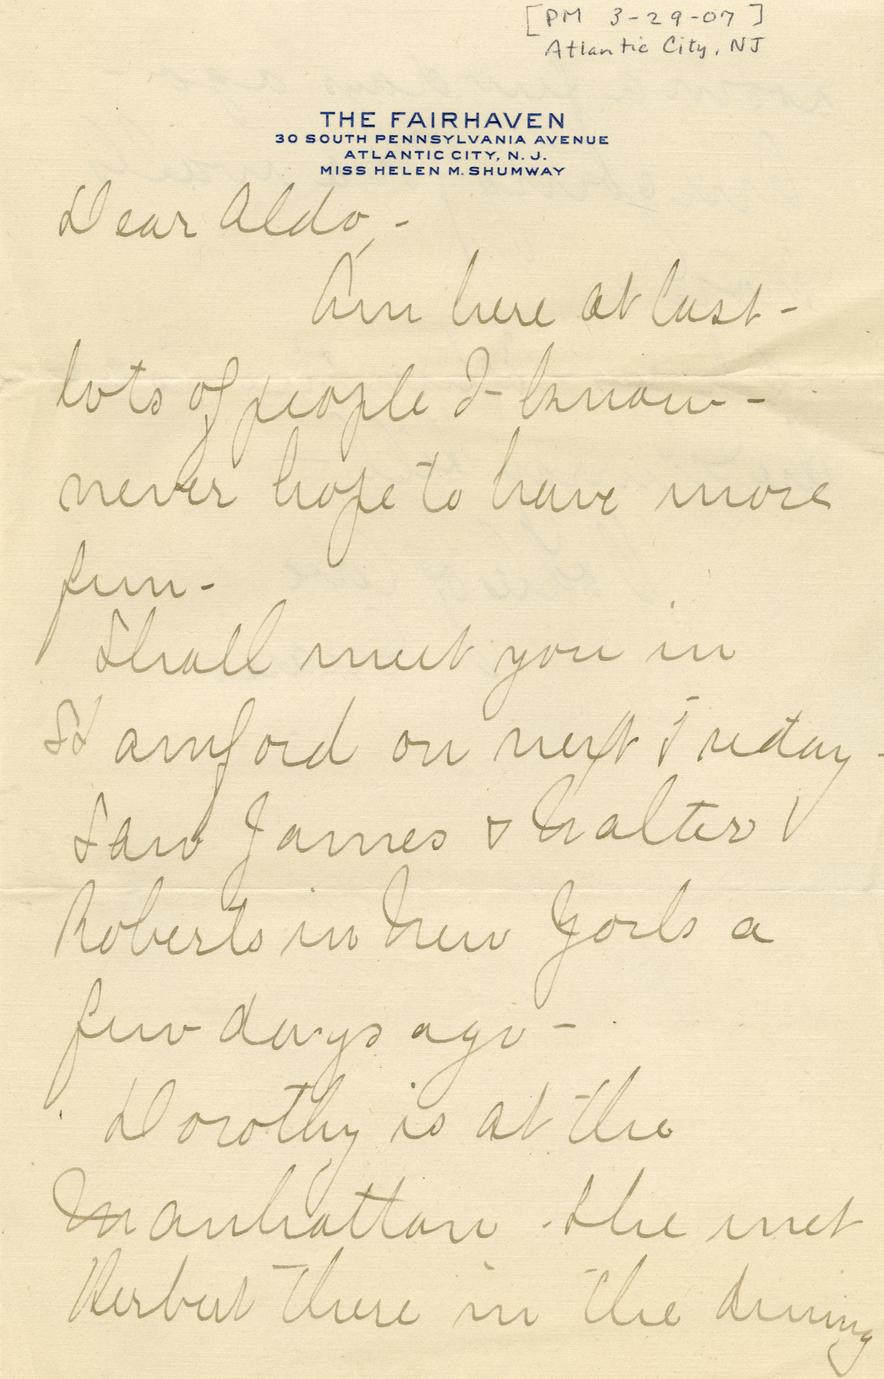 [PM 3-29-07]
Atlantic City, NJ
THE FAIRHAVEN
30 SOUTH PENNSYLVANIA AVENUE
ATLANTIC CITY, N. J.
MISS HELEN M. SHUMWAY
Dear Aldo,-
Am here at last-
lots of people I know-
never hope to have more
fun-
Shall meet you in
Stamford on next Friday-
Saw James & Walter
Roberts in New York a
few days ago-
Dorothy is at the
Manhattan - She met
Herbert there in the dining